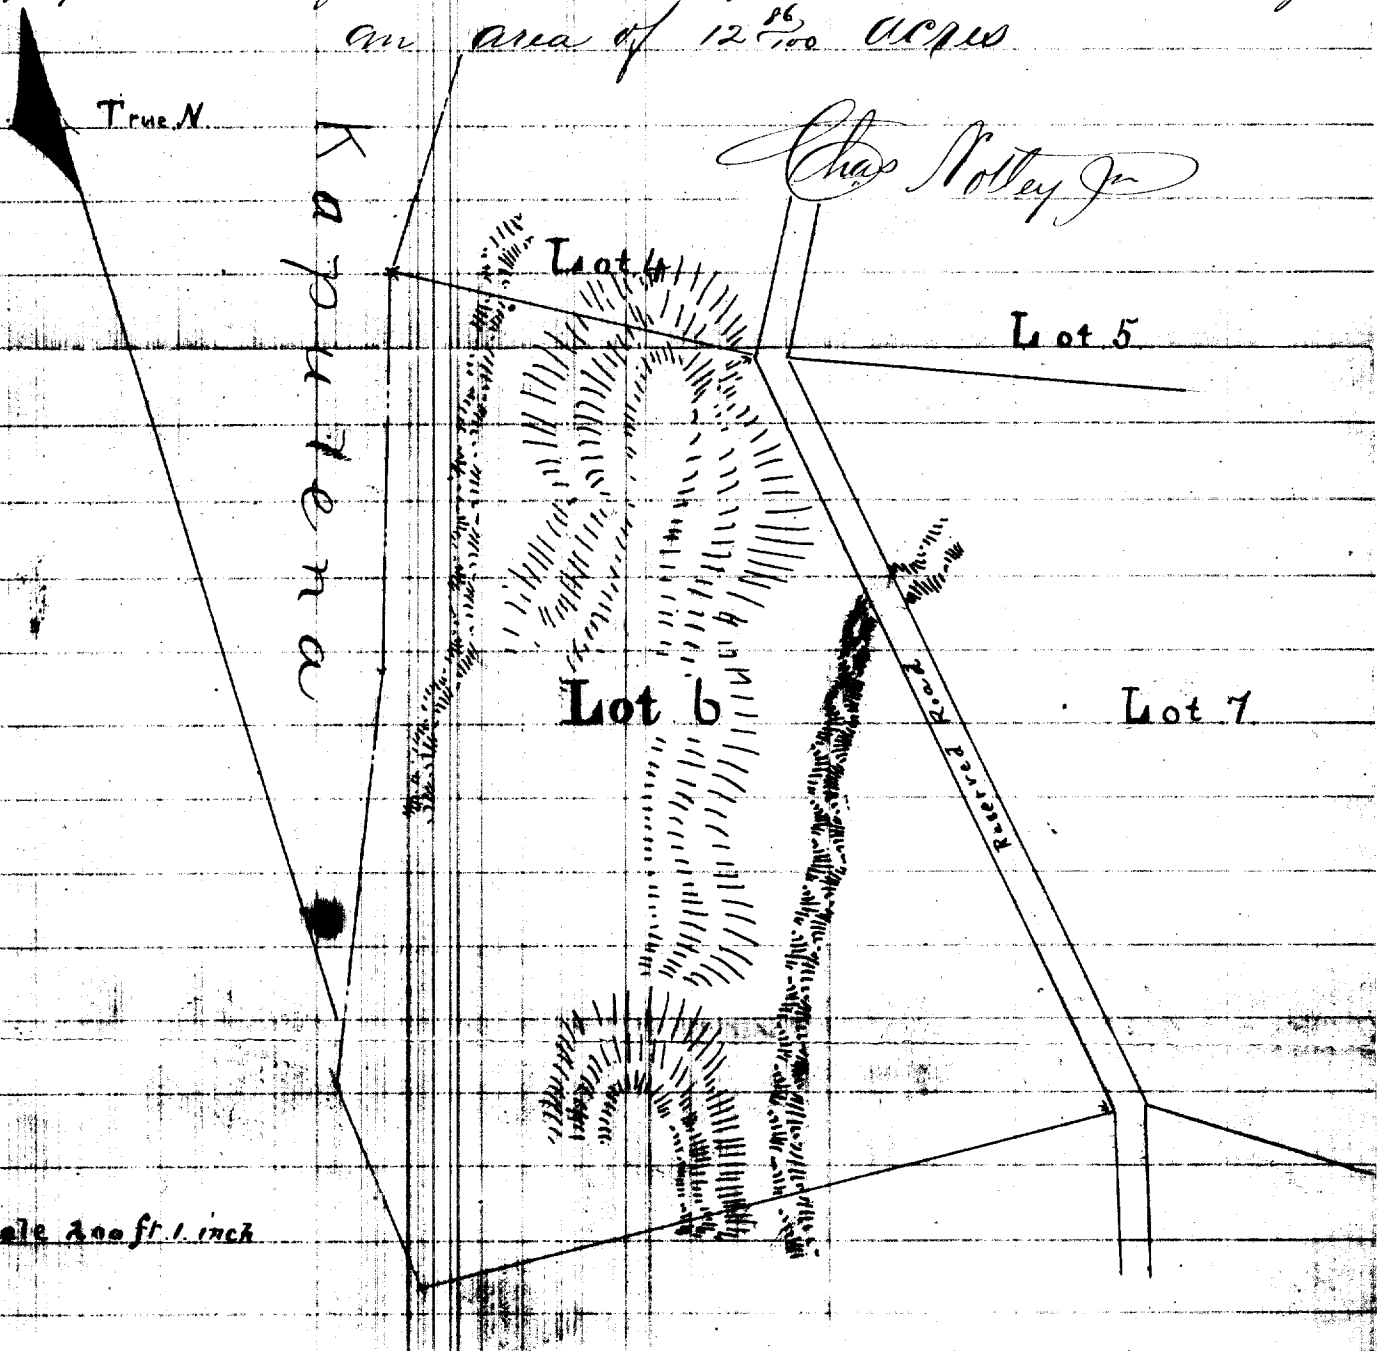 an area of 12 86/100 acres
True N.
Chas Notley Jr
Kapulena
Lot 4
Lot 5
Lot 6
Lot 7
Reserved Road
200 ft. 1 inch